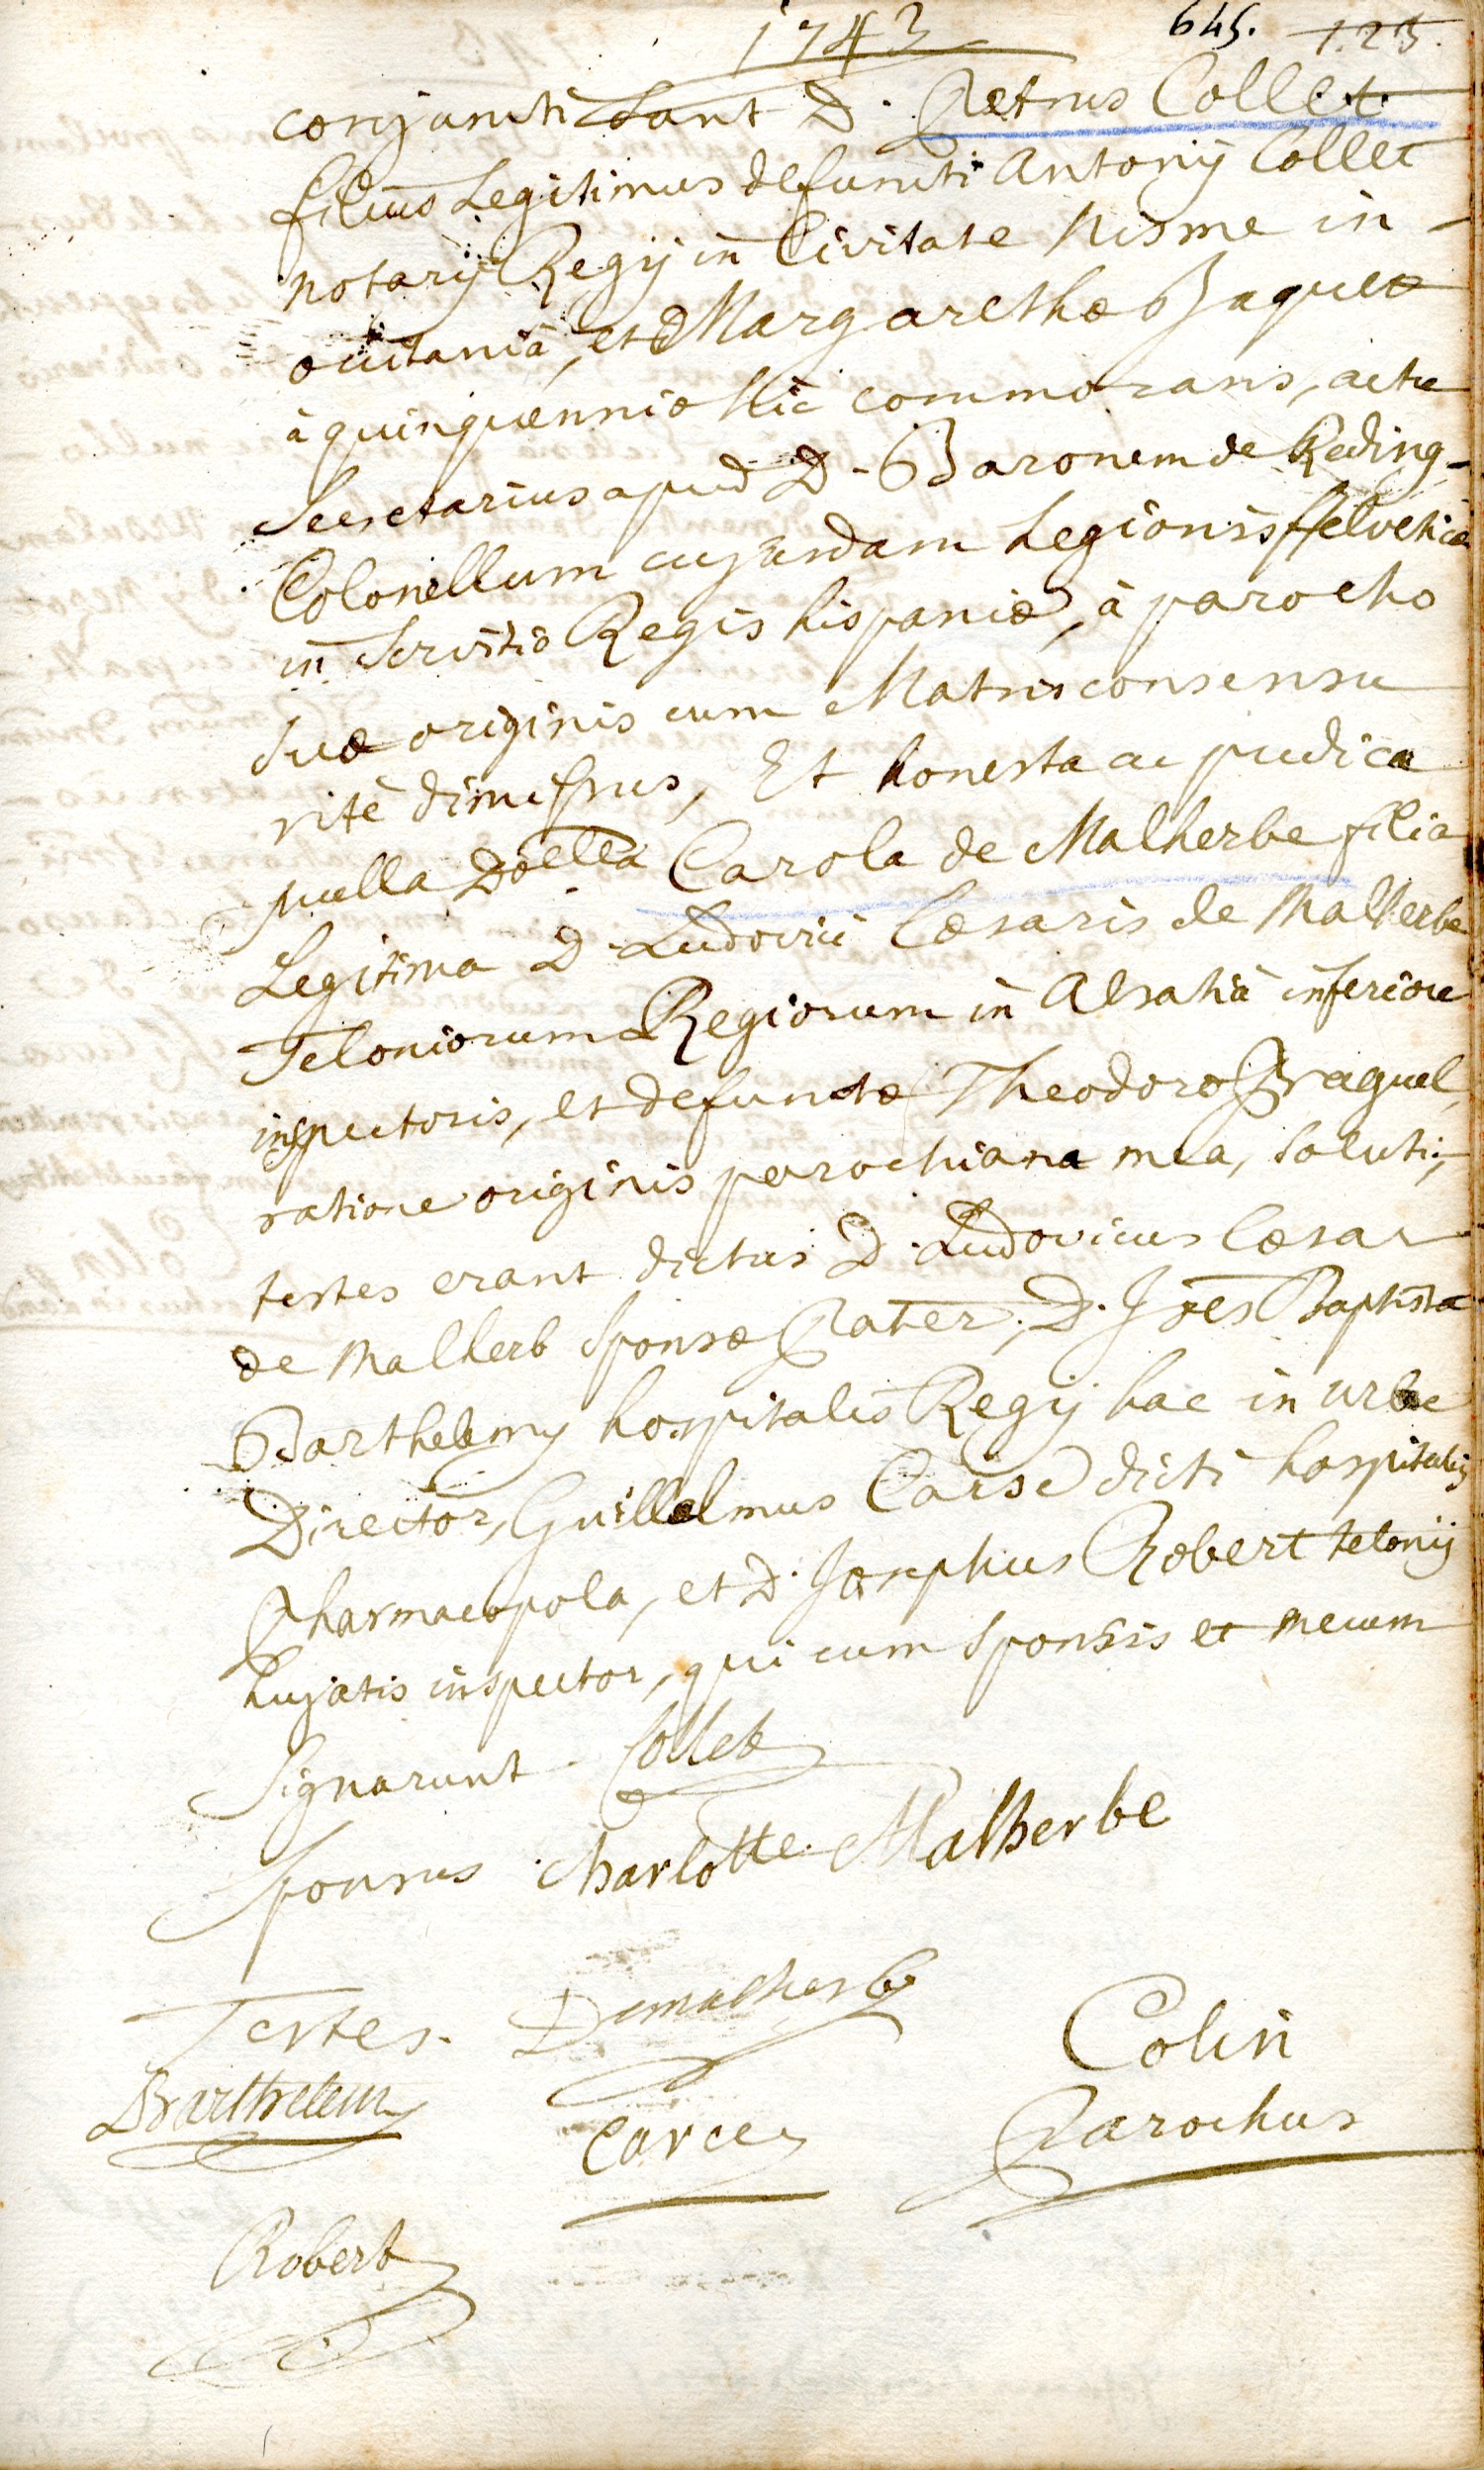 1743 645. 123.
conjuncti sunt D. Petrus Collet
filius Legitimus defuncti Antonij Collet
notarij Regij in Civitate Nisme in
occitaniâ, et Margarethæ Jaquet
à quinquennio hic commorans, actu
Secretarius apud D. Baronem de Reding
Colonellum cujusdam Legionis Helveticæ
in servitio Regis hispaniæ, à parocho
suæ originis cum Matris consensu
ritè dimissus, Et honesta ac pudica
puella Doella Carola de Malherbe filia
Legitima D. Ludovici Cæsaris de Malherbe
Teloniorum Regiorum in Alsatiâ inferiore
inspectoris, et defunctæ Theodoræ Braquel,
ratione originis parochiana mea, soluti;
testes erant dictus D. Ludovicus Cæsar
de Malherb sponsæ Pater, D. Joes Baptista
Barthelemy hospitalis Regij hac in urbe
Director, Guillelmus Carse dicti hospitalis
Pharmacopola, et D. Josephus Robert telonij
hujatis inspector, qui cum sponsis et mecum
Signarunt. Collet
Sponsus Charlotte Malherbe
Testes. Demalherbe
Colin
Barthelemy Carce Parochus
Robert